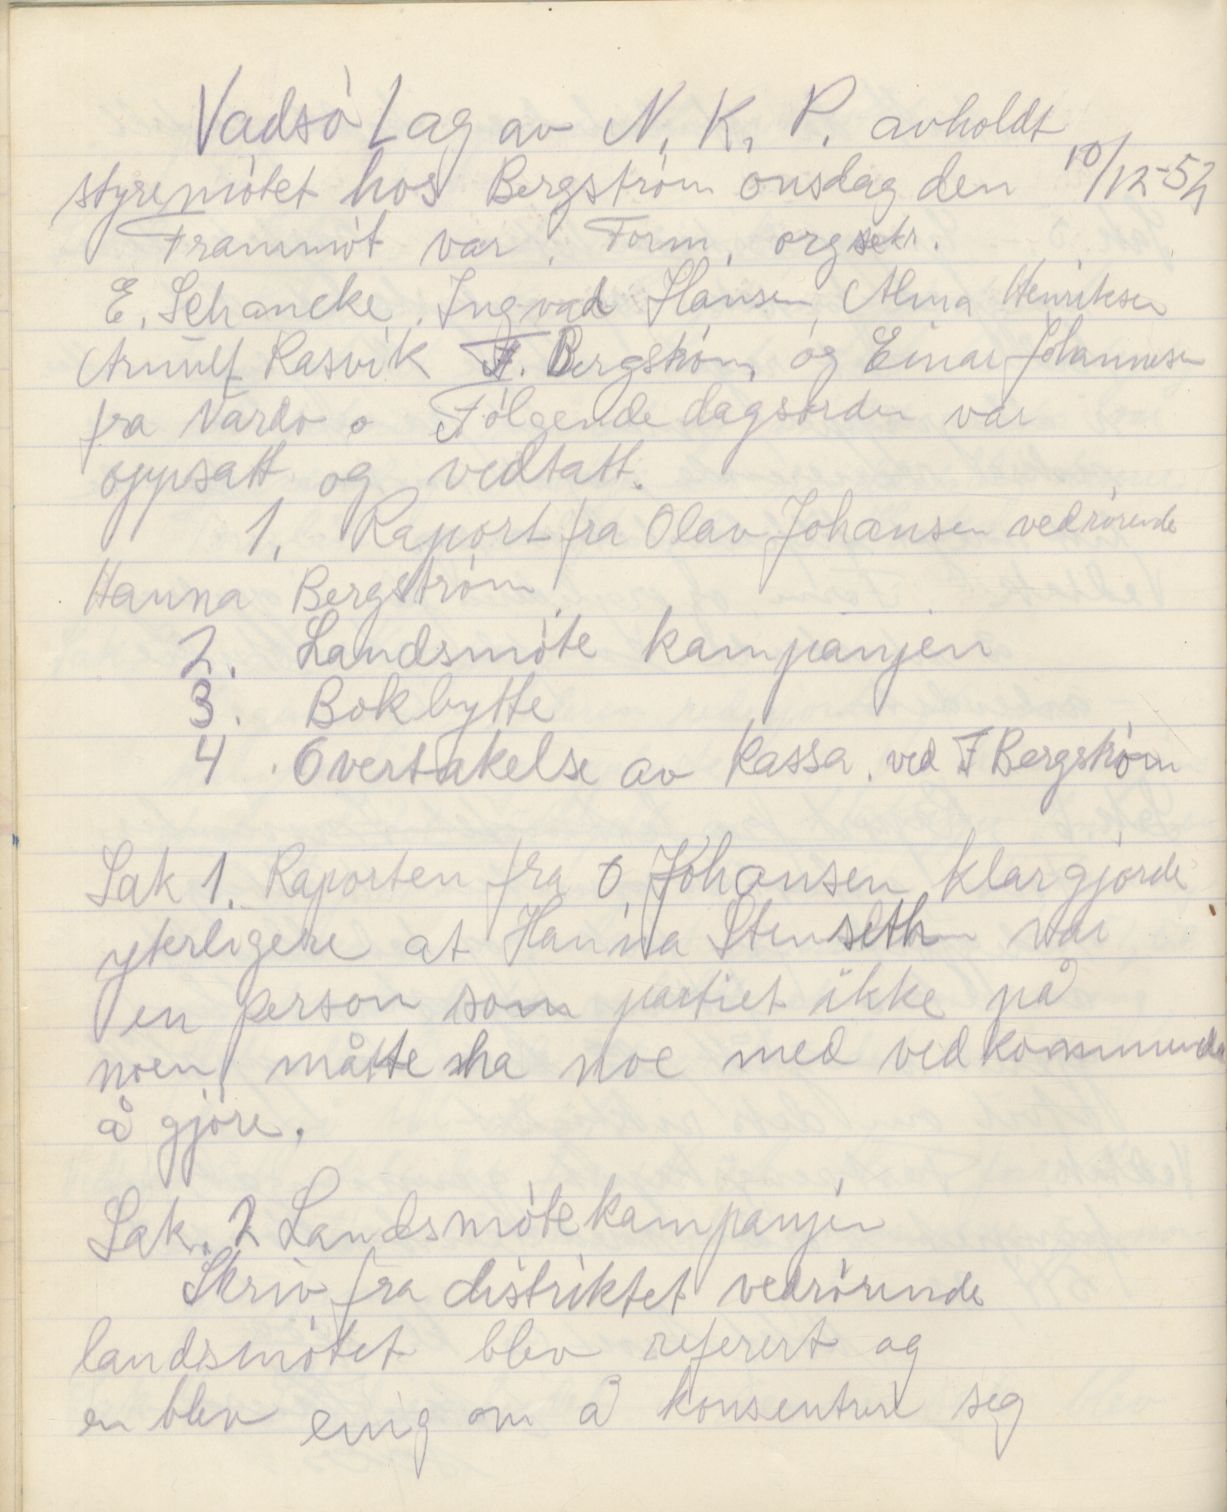 Vadsö Lag av N. K. P. avholdt
styremötet hos Bergström onsdag den 10/12-52
Frammöt var. Form, orgsekr.
E. Schancke, Ingvad Hansen, Alma Henriksen
Arnulf Rasvik F. Bergström, og Einar Johannesen
fra Vardö. Fölgende dagsorden var
oppsatt og vedtatt.
1. Raport fra Olav Johansen vedrörende
Hanna Bergström
2. Landsmöte kampanjen
3. Bokbytte
4. Overtakelse av kassa. ved F Bergström
Sak 1. Raporten fra O. Johansen klargjorde
yterligere at Hanna Stenseth var
en person som partiet ikke på
noen måtte ha noe med vedkommende
å gjöre.
Sak. 2 Landsmötekampanjen
Skriv fra distriktet vedrörende
landsmötet blev referert og
en blev enig om å konsentrere seg